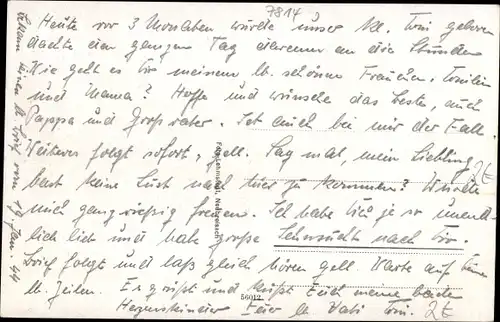 7814
Heute vor 3 Monaten wurde unser kl. Toni geboren
dachte den ganzen Tag daran an die Stunden
Wie geht es Dir meinem lb. schönen Frauchen,
und Mama? Hoffe und wünsche das Beste, auch
Pappa und Großvater. Ist auch bei mir der Fall.
Weiteres folgt sofort, gell. Sag mal, mein Liebling
hast keine Lust nach hier zu kommen? Würde
mich ganz riesig freuen. Ich habe Dich je so unend-
lich lieb und habe große Sehnsucht nach Dir.
Brief folgt und laß gleich hören gell. Warte auf Deine
lb. Zeilen. Es grüßt und küßt Euch meine beiden
Herzenskinder Euer lb. Vati Toni.
2E
2E
56012
19. Jan. 44